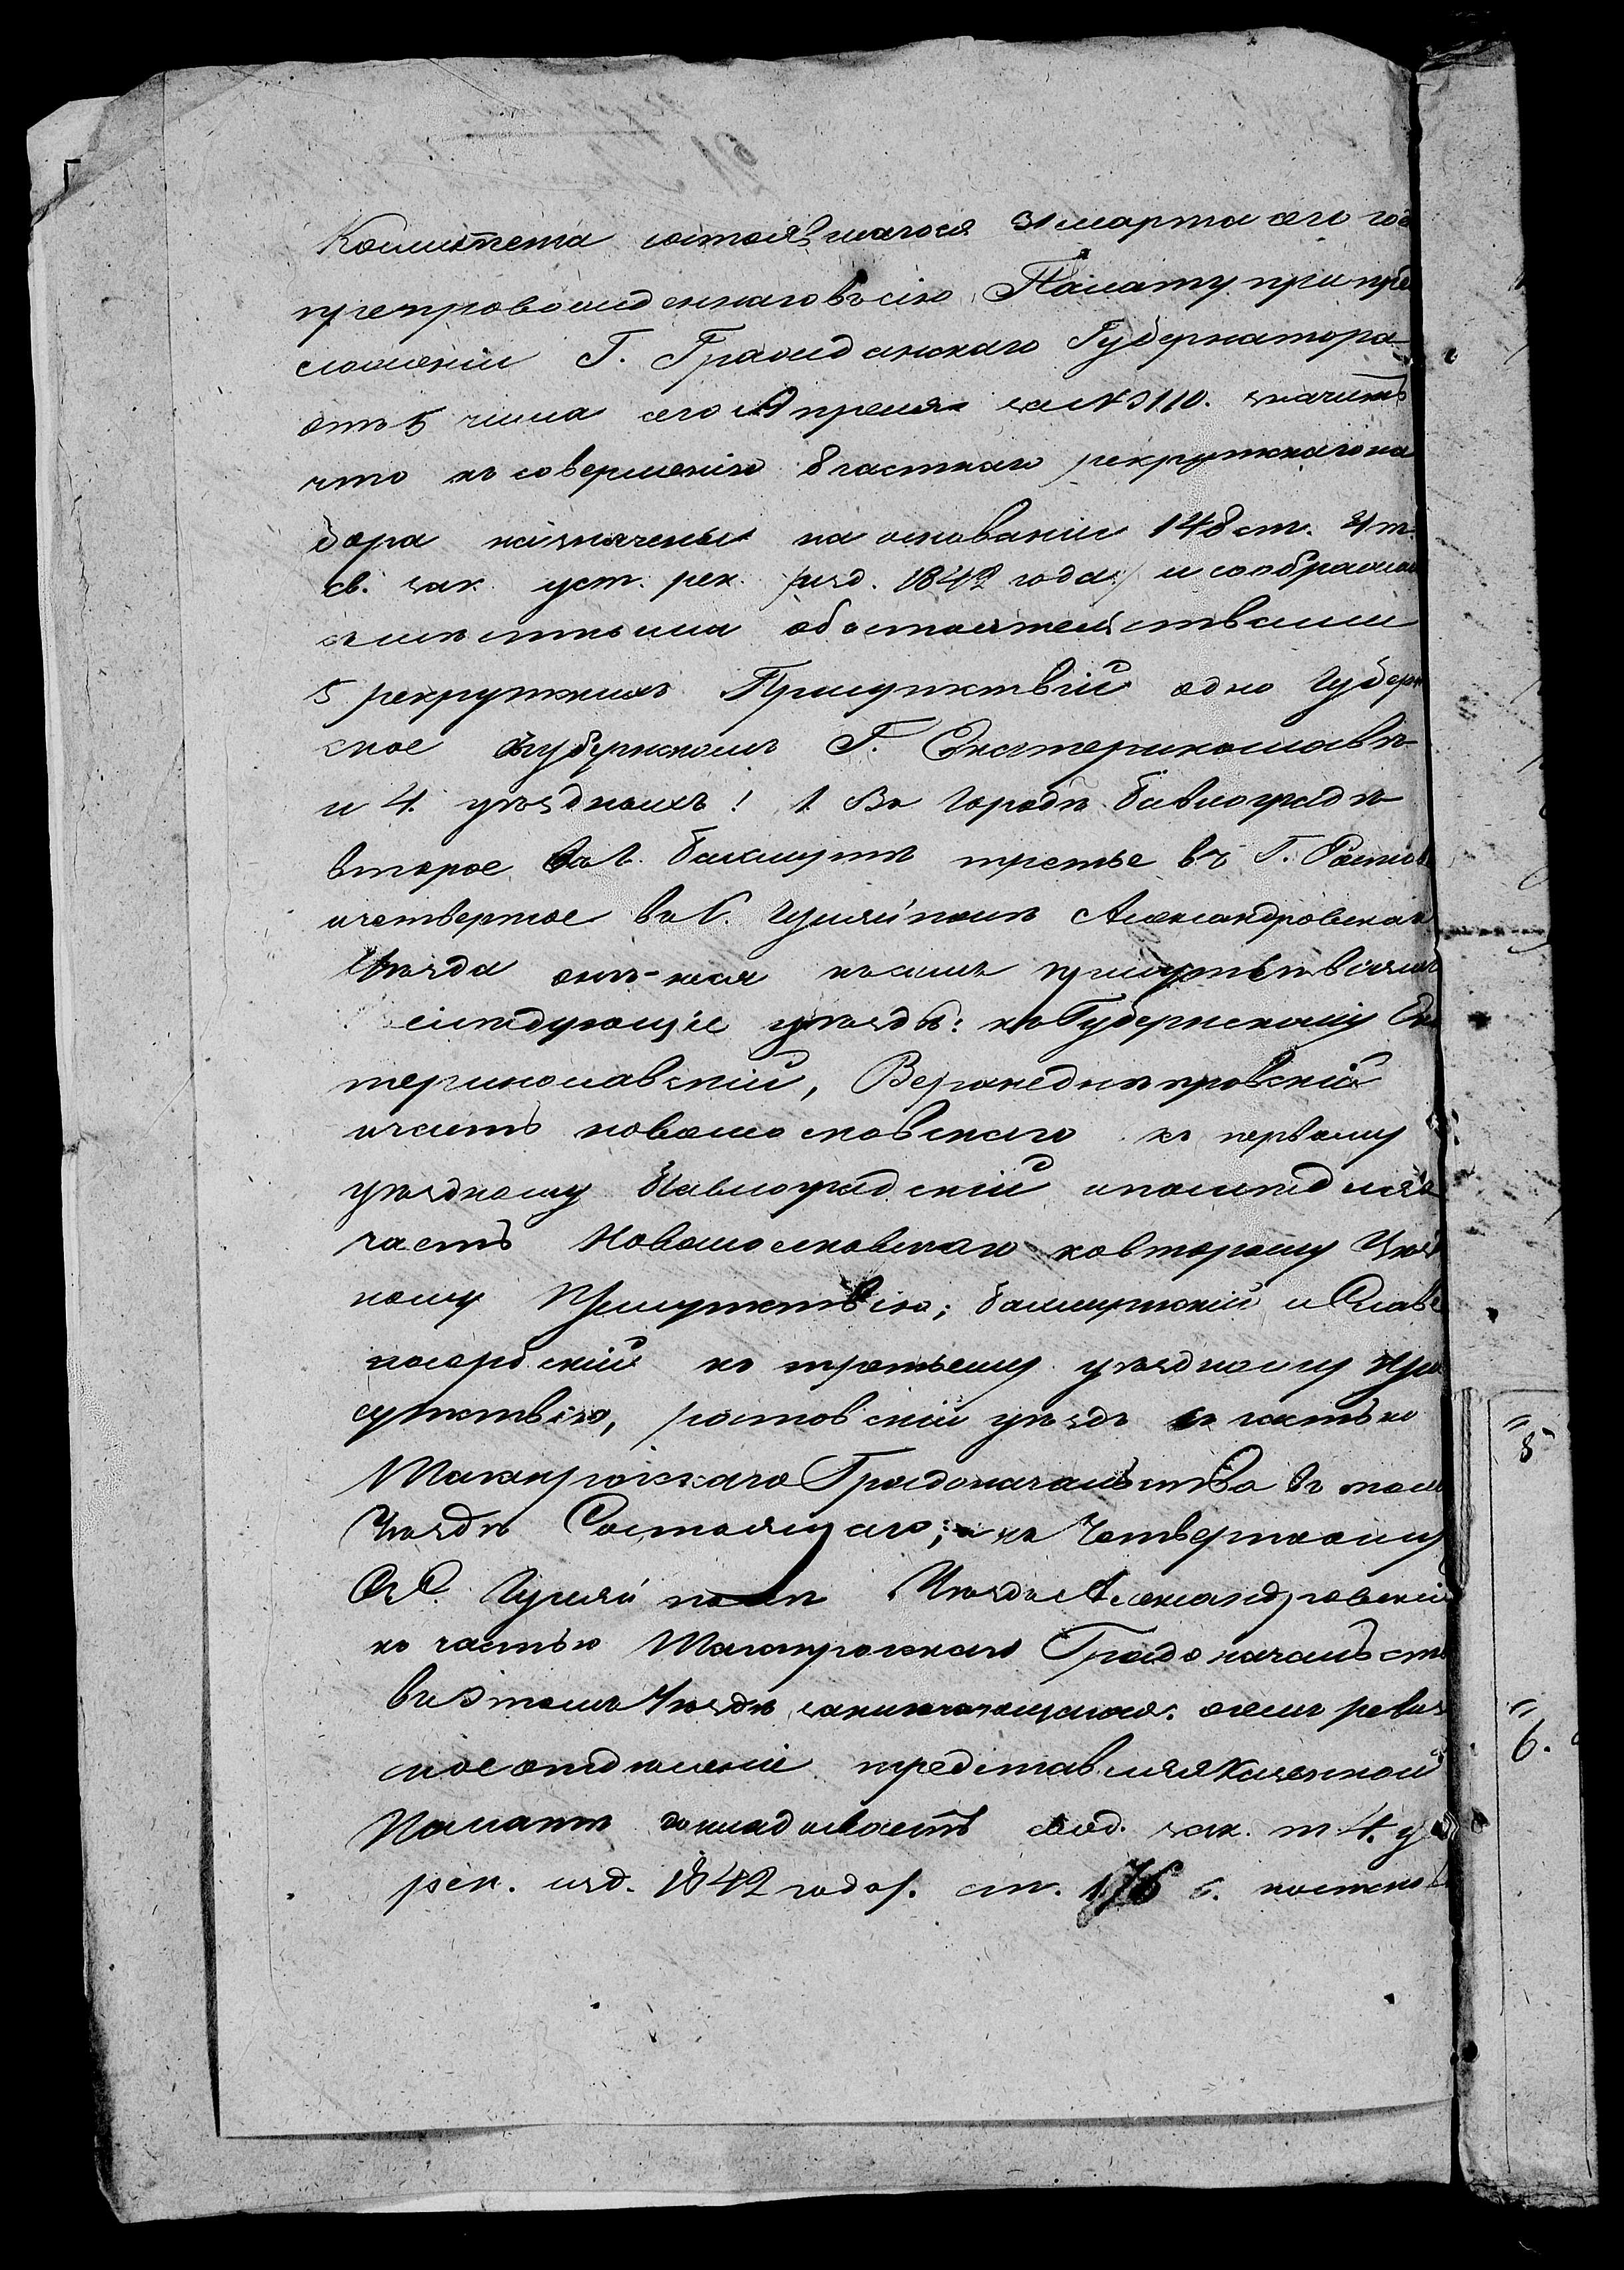 Комитета состоявшагося 31 марта сего год
препровожденнаго въ сію Палату при пред
сложеніи Г. Гражданскаго Губернатора
отъ 5 числа сего Апреля за № 3110. значитъ
что къ совершенію 8 частнаго рекрутскаго на
бора назначены на основаніи 148 ст. 4 т.
св. зак. уст. рек. /изд. 1842 года/ и соображая
съ местными обстоятельствами
5 рекрутскихъ Присутствій одно Губерн
ское въ губернскомъ Г. Екатеринославѣ
и 4. уѣздныхъ: 1. Во Городѣ Павлоградѣ
второе въ Г. Бахмутѣ третье въ Г. Ростов
и четвертое въ С. Гуляйполѣ Александровскаго
Уѣзда къ симъ присутствіямъ
слѣдующіе уѣзды: къ Губернскому Ека
теринославскій, Верхнеднѣпровскій
и часть новомосковскаго къ первому
уѣздному Павлоградскій и послѣдняя
часть Новомосковскаго ко второму Уѣзд
ному Присутствію; Бахмутскій и Славя
носербскій къ третьему уѣздному при
сутствію, ростовскій уѣздъ съ частью
Таганрогскаго Градоначальства въ томъ
Уѣздѣ Состоящаго; къ Четвертому
С. Гуляйполѣ Уѣздъ Александровскій
съ частью Таганрогскаго Градоначальств
въ этомъ Уѣздѣ заключающагося. о семъ ревиз
ское отдѣленіе представляя Казенной
Палатѣ докладываетъ свод. зак. т. 4. у
рек. изд. 1842 года/. ст. 176
5
6.